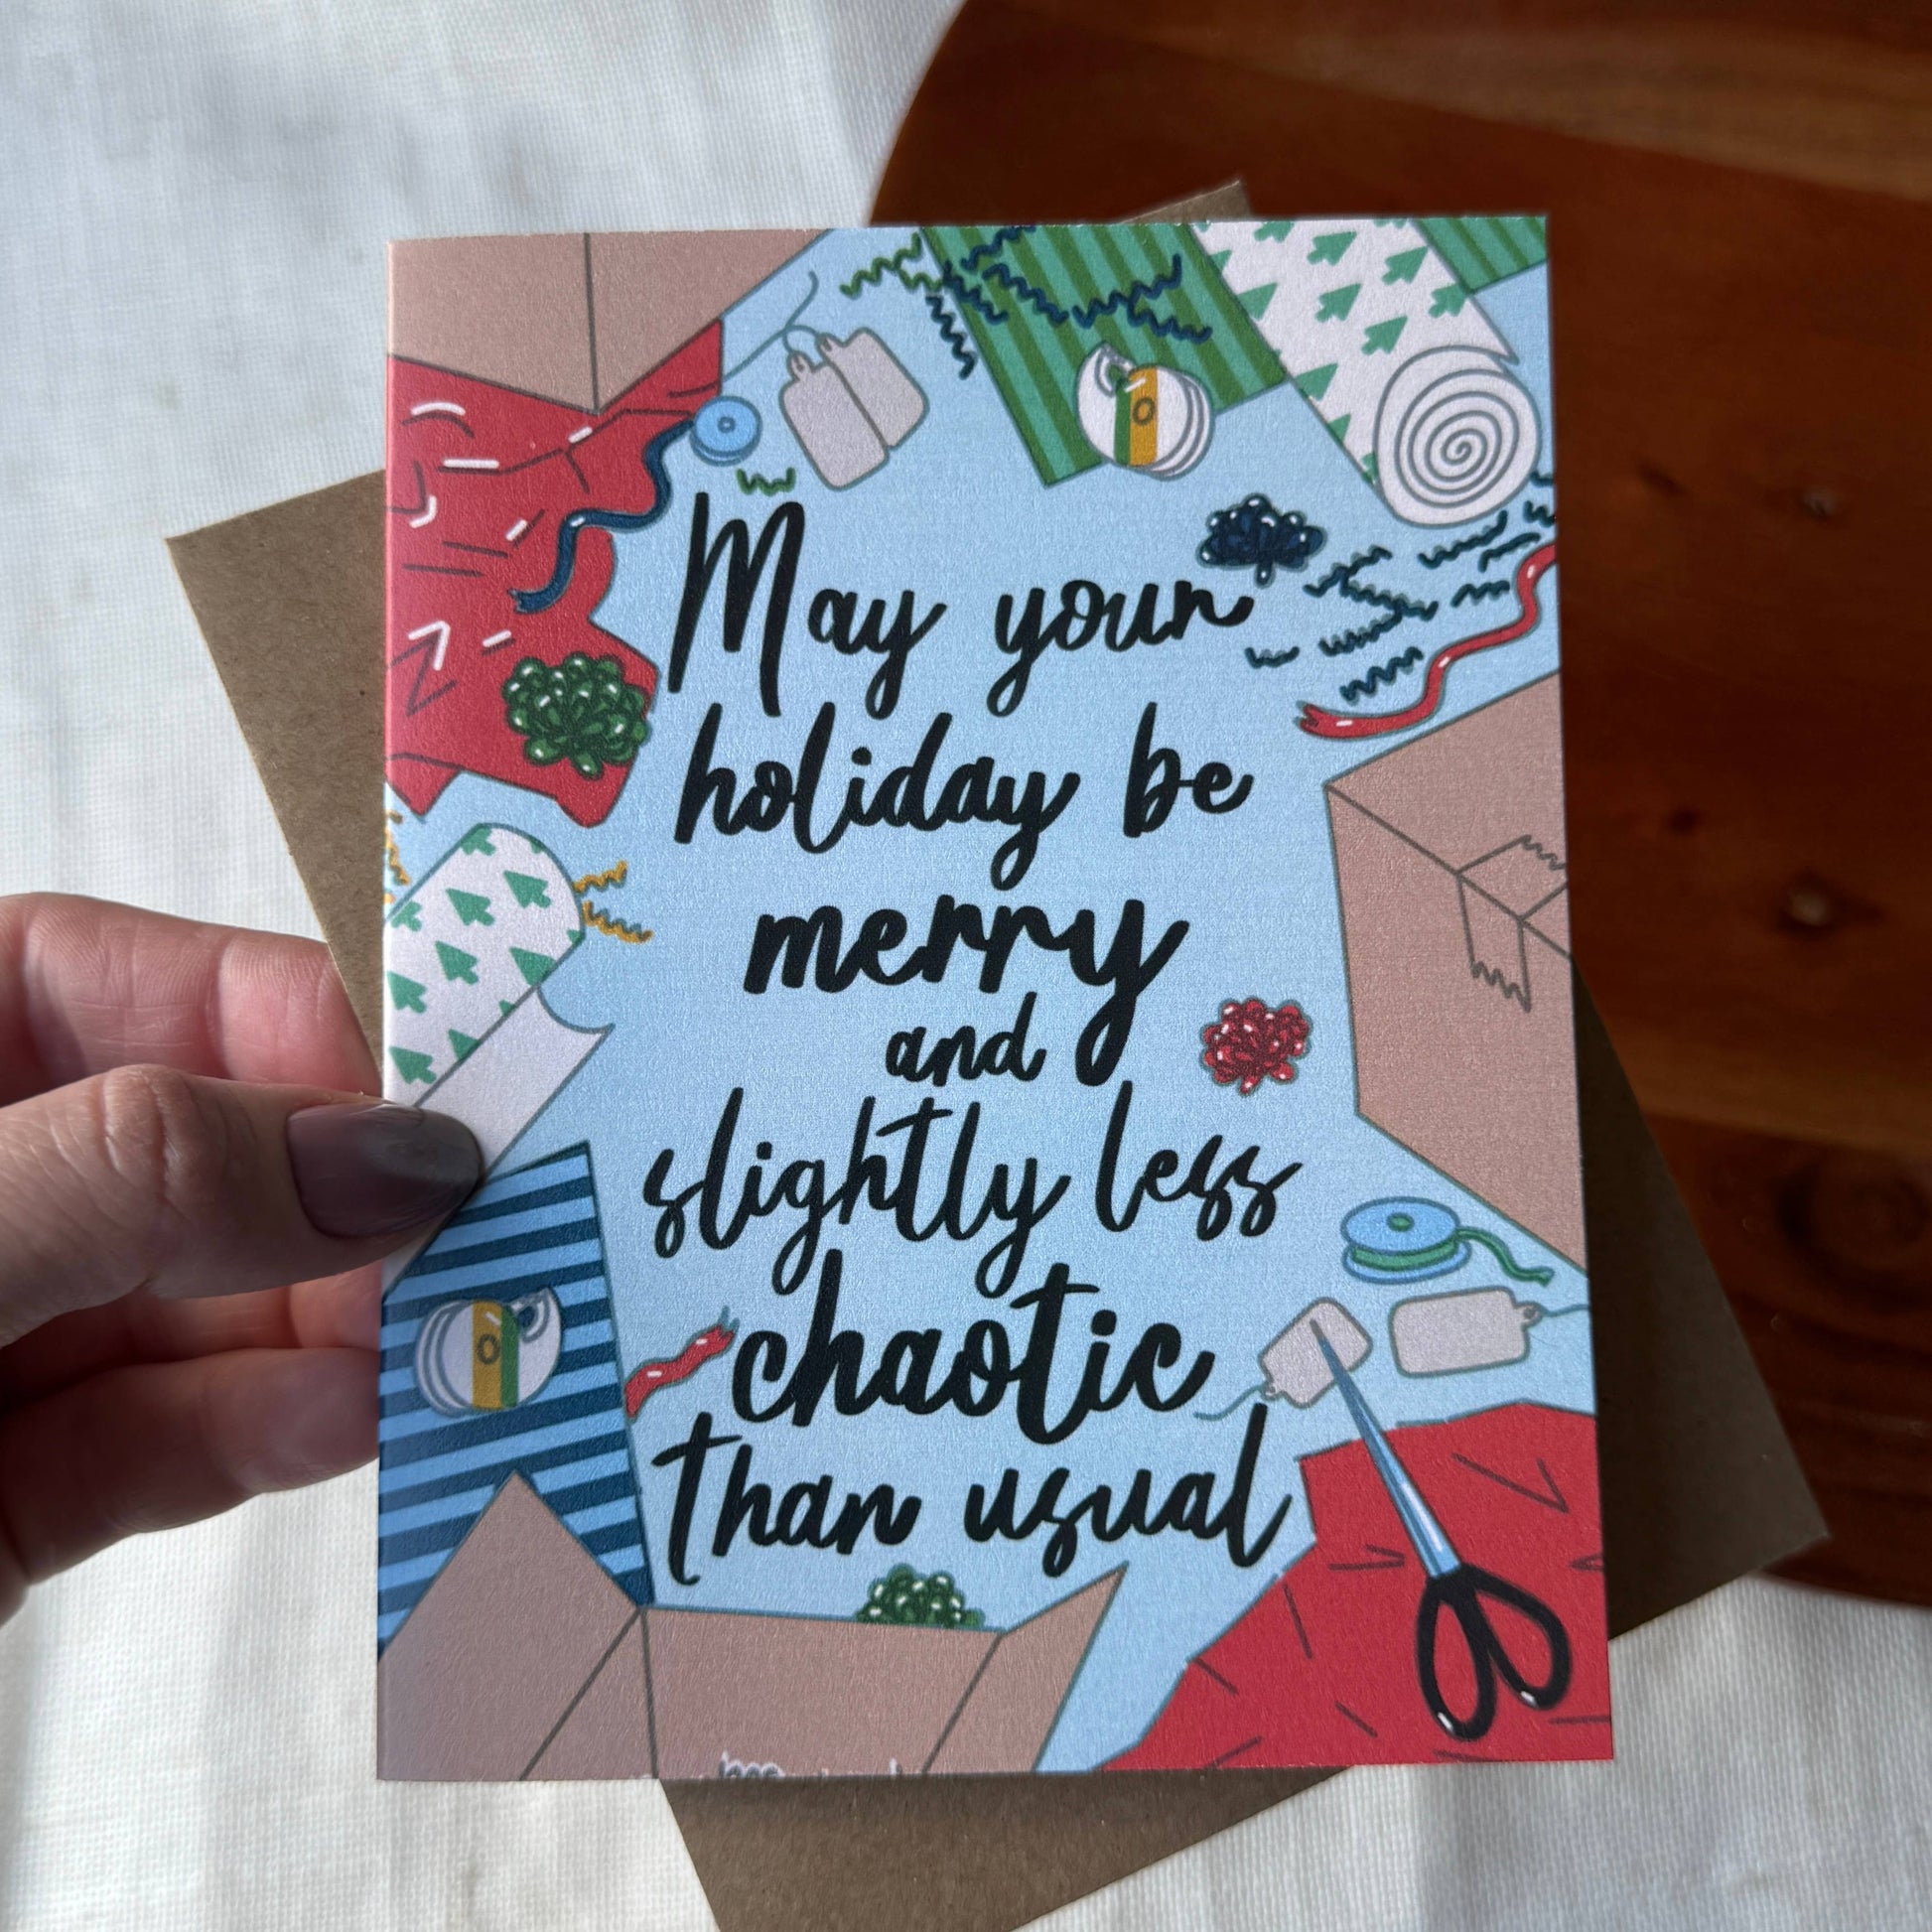 May your
holiday be
merry
and
slightly less
chaotic
than usual